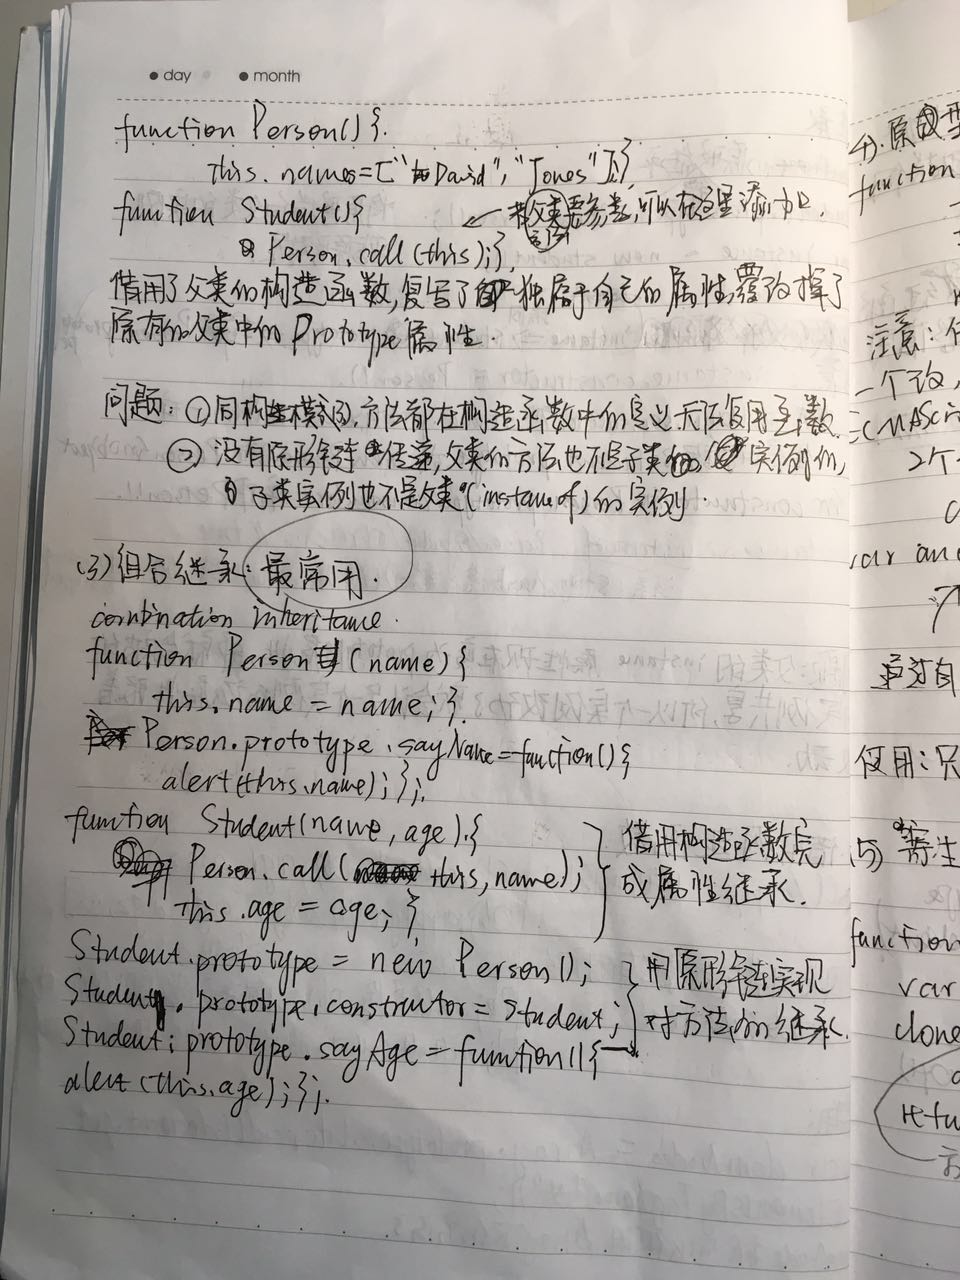 day month
function Person(){
this.names=["David","Jones"];}
function Student(){ ← 父类需参数,可以在这里添加
Person.call(this);}
借用了父类的构造函数,复写了独属于自己的属性,覆盖掉了
原有的父类中的Prototype属性.
问题: ① 同构造模式,方法都在构造函数中的定义,无法复用函数.
② 没有原形链传递,父类的方法也不是子类实例的,
子类实例也不是父类(instance of)的实例.
(3)组合继承:最常用.
combination inheritance.
function Person(name){
this.name = name;}
Person.prototype.sayName=function(){
alert(this.name);};
function Student(name, age){
Person.call(this, name);
this.age = age; }
借用构造函数完
成属性继承.
Student.prototype = new Person();
Student.prototype.constructor = Student;
Student.prototype.sayAge = function(){
alert(this.age);};
用原形链实现
对方法的继承.
function
注意:
一个
2个
var
通过
使用:只
(5) 寄生
function
var
clone